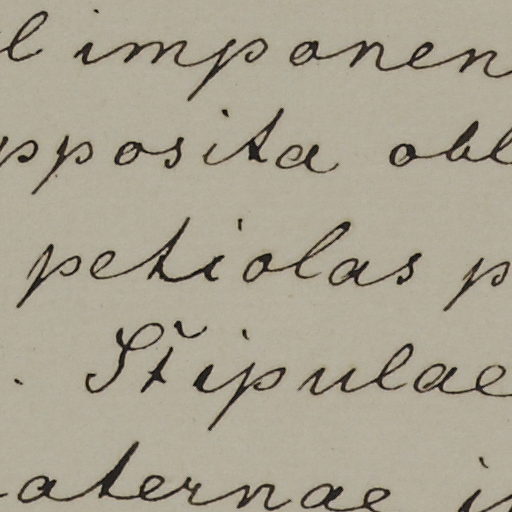 l imponen
pposita obl
petiolas p
. Stipulae
aternae i